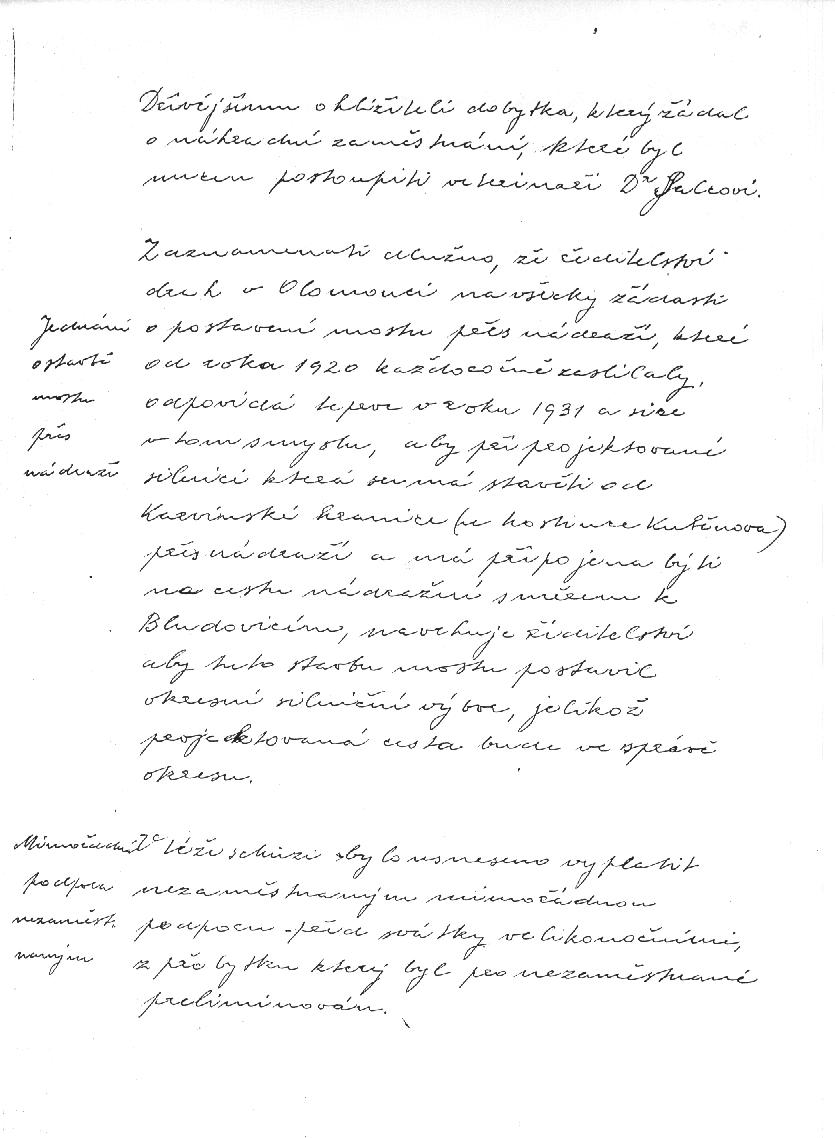 Dřívějšímu ohlížiteli dobytka, který žádal
o náhradní zaměstnání, které byl
nucen postoupiti veterináři Dr
Zaznamenati dlužno, že ředitelství
drah v Olomouci na všecky žádosti
Jednání
o postavení mostu přes nádraží, které
o stavbě
od roku 1920 každoročně zasílaly,
mostu
odpovídá teprve v roku 1931 a sice
přes
v tom smyslu, aby při projektované
nádraží
silnici která se má stavěti od
Karvinské hranice (u hostince Kuběnova)
přes nádraží a má připojena býti
na cestu nádražní směrem k
Bludovicím, navrhuje ředitelství
aby tuto stavbu mostu postavil
okresní silniční výbor, jelikož
projektovaná cesta bude ve správě
okresu.
Mimořádná
V téže schůzi bylo usneseno vyplatit
podpora
nezaměstnaným mimořádnou
nezaměst-
podporu před svátky velikonočními,
naným
z přebytku který byl pro nezaměstnané
preliminován.